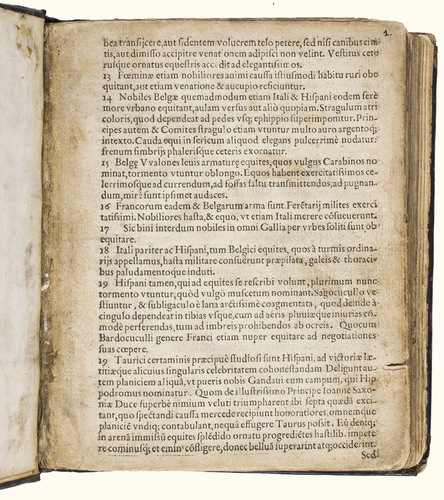 bea transijcere, aut sidentem volucrem telo petere, sed nisi canibus cinctis, aut dimisso accipitre venationem adipisci non velint. Vestitus cetorusque ornatus equestris accedit ad elegantissimos.
13 Fœminæ etiam nobiliores animi caussa istiusmodi habitu ruri obequitant, aut etiam venatione & aucupio reficiuntur.
14 Nobiles Belgæ quemadmodum etiam Itali & Hispani eodem fere
more vrbano equitant, aulam versus aut aliò quopiam. Stragulum atri
coloris, quod dependeat ad pedes vsq; ephippio superimponitur. Prin-
cipes autem & Comites stragulo etiam vtuntur multo auro argentoq;
intexto. Cauda equi in sericum aliquod elegans pulcerrimè nodatur:
frenum fimbrijs phalerisque ceteris exornatur.
15 Belgę Vvalones leuis armaturę equites, quos vulgus Carabinos no-
minat, tormento vtuntur oblongo. Equos habent exercitatissimos ce-
lerrimosque ad currendum, ad fossas saltu transmittendos, ad pugnan-
dum, mirè sunt ipsimet audaces.
16 Francorum eadem & Belgarum arma sunt. Ferētarij milites exerci
tatissimi. Nobiliores hasta, & equo, vt etiam Itali merere cōsueuerunt.
17 Sic bini interdum nobiles in omni Gallia per vrbes soliti sunt ob-
equitare.
18 Itali pariter ac Hispani, tum Belgici equites, quos à turmis ordina-
rijs appellamus, hasta militare consueuerunt præpilata, galeis & thoraci
bus paludamentoque induti.
19 Hispani tamen, qui ad equites se rescribi volunt, plurimum nunc
tormento vtuntur, quòd vulgò muscetum nominant. Sagocucullo ve
stiuntur, & subligaculo è lana arctissimè coagmentata, quod deinde à
cingulo dependeat in tibias vsque, cum ad aëris pluuiæque iniurias cō-
modè perferendas, tum ad imbreis prohibendos ab ocreis. Quocum
Bardocuculli genere Franci etiam nuper equitare ad negotiationes
suas cœpere.
19 Taurici certaminis præcipuè studiosi sunt Hispani, ad victoriæ læ-
titiæque alicuius singularis celebritatem cohonestandam. Deligunt au-
tem planiciem aliquā, vt pueris nobis Gandaui eum campum, qui Hip
podromus nominatur. Quom de illustrissimo Principe Ioanne Saxo-
niæ Duce superbè nimium veluti triumpharent ibi septa quædā exci-
tant, quo spectandi caussa mercede recipiunt honoratiores, omnemque
planiciē vndiq; contabulant, nequà effugere Taurus possit. Eū denq;
in arenā immissū equites splēdido ornatu progrediētes hastilib. impete
re cominusq; et eminꝰ cōsligere, donec belluā superarint atq; occiderint.
Sed